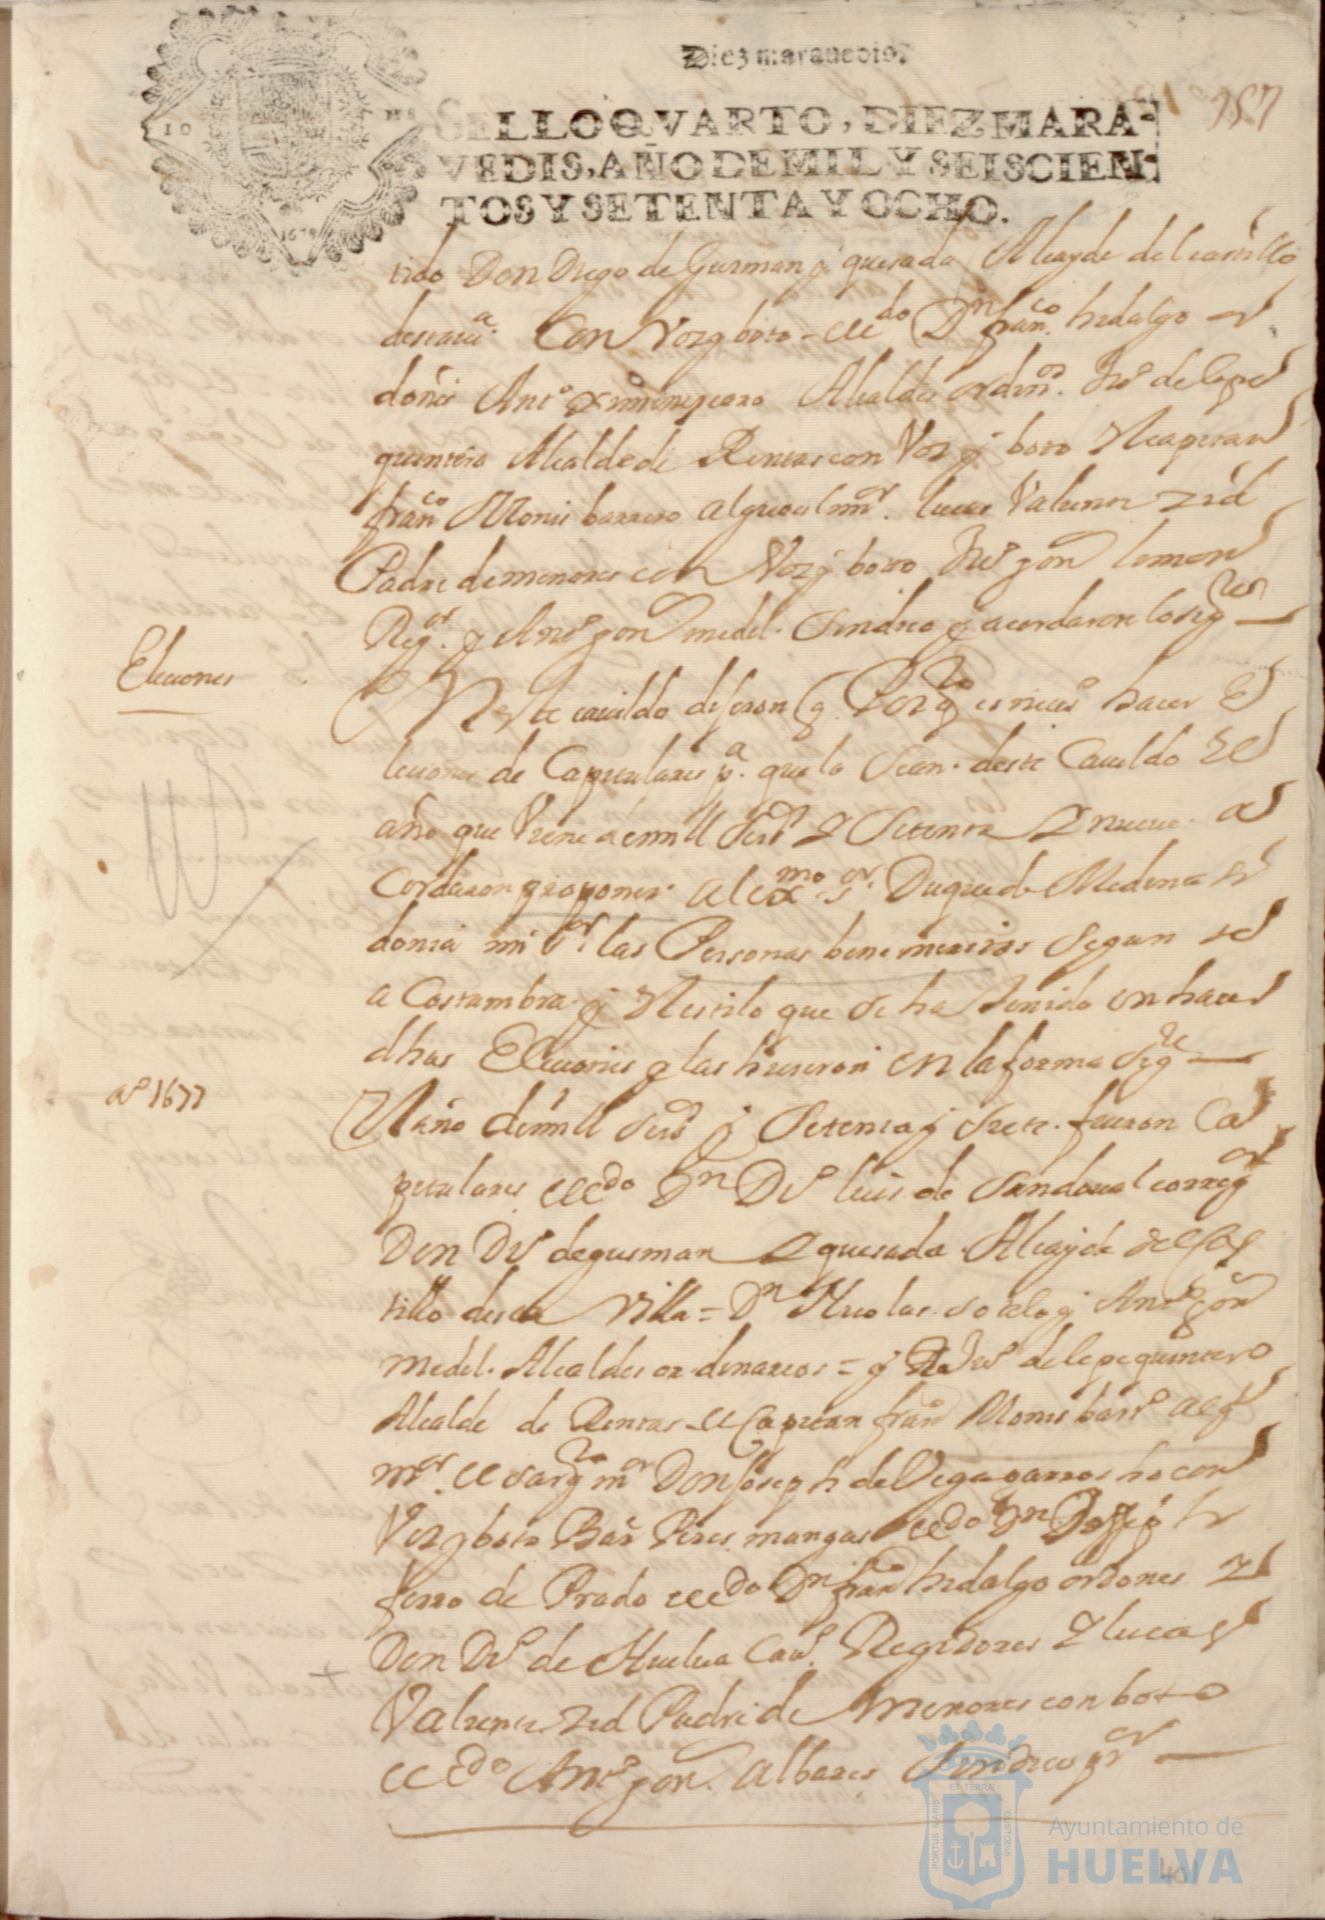 Diez maravedis.
157
SELLO QVARTO, DIEZ MARA-
VEDIS, AÑO DE MIL Y SEISCIEN-
TOS Y SETENTA Y OCHO.
1678
tido Don Diego de Guzman y quesada Alcayde del castillo
Con Voz y boto = Licdo Dn franco hidalgo or
doñes Anto ximenez caro Alcaldes ordinos. Juo de lepe
quintero Alcalde de Rentas con Voz y boto El capitan
franco Monis barrero alguacil mor. lucas Valiente
Padre de menores con Voz y boto Juo gon
Regor. y Anto gon medel. Sindico y acordaron lo sigte
Eleciones
En este cavildo dixeron q Por q es neceso hacer E
leciones de Capitulares pa. que lo sean. deste Cavildo El
año que Viene de mill seiso y Setenta y nueve. a
cordaron proponer al exmo sor. Duque de Medina si
donia mi sor. las Personas benemeritas segun
a Costumbre y Estilo que se ha tenido en hacer
dhas Eleciones y las hicieron en la forma sigte
ao 1677
El año de mill seiso y Setenta y siete. fueron Ca
pitulares el Licdo Dn Do luis de Sandoval corregor
Don Do de gusman y quesada Alcayde del Cas
tillo desta Villa = Dn Nicolas sotelo y Anto gon
medel. Alcaldes ordinarios = y Juo de lepe quintero
Alcalde de Rentas el Capitan franco Monis barro alg
mor. el sargto mor Don Joseph de Vega garrocho con
Voz y boto Bar Peres mangas el Licdo Dn
fierro de Prado el Licdo Dn franco hidalgo ordones y
Don Do de Huelva Cavo. Regidores y lucas
Valiente Padre de Menores con boto
el Licdo Anto gon. albares Sindico pror
PORTUS MARIS ET TERRAE CUSTODIA
Ayuntamiento de
HUELVA